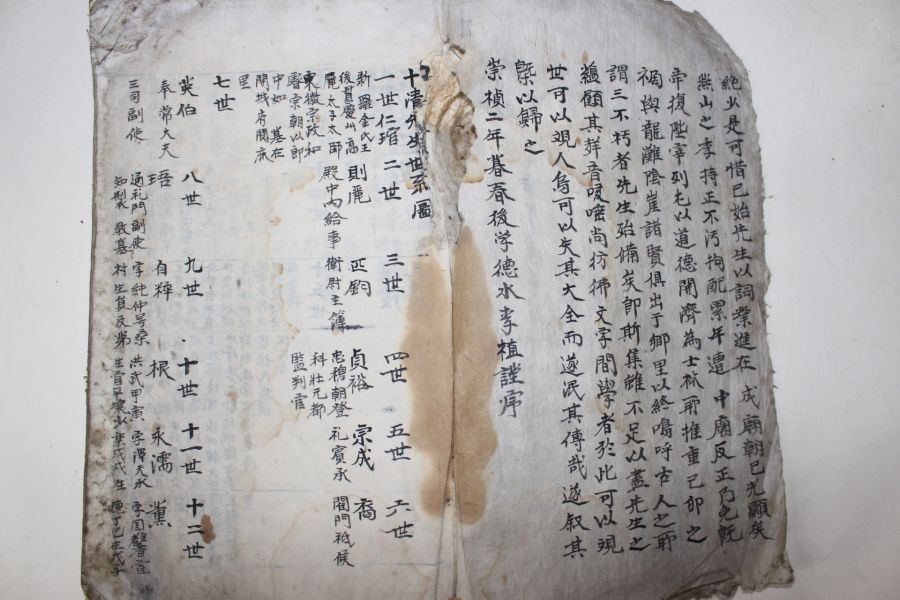 絶少是可惜已始先生以詞業進在 成廟朝已光顯矣
燕山之李持正不汚拘配累年遭 中廟反正乃 既
帝復陞宰列 以道德開濟為士林所推重己卯之
禍與龍灘陰崖諸賢俱出于鄕里以終嗚呼古人之所
謂三不朽者先生殆備矣即斯集雖不足以盡先生之
蘊顧其 音咳唾尚彷彿文字間學者於此可以現
世可以观人烏可以失其大全而遂泯其傳哉遂叙其
槩以歸之
崇禎二年暮春後学德水李植謹序
十淸先生世系圖
一世仁琯 二世 三世 四世 五世 六世
新羅金氏王 則麗 匹鈞 貞裕 宗成 裔
後貫慶州高 殿中內給事 衛尉主簿 忠穆朝登 礼賓丞 閤門祗候
麗太子太師 科壯元都
東徽宗政和 監判官
睿宗朝以郎
中如 墓在
開城府開京
里
七世 八世 九世 十世 十一世 十二世
英伯 珸 自粹 根 永濡 薰
奉常大夫 通礼門副使 字純仲号桑 洪武甲寅 字澤夫永
三司副使 知製敎墓 村生員及第